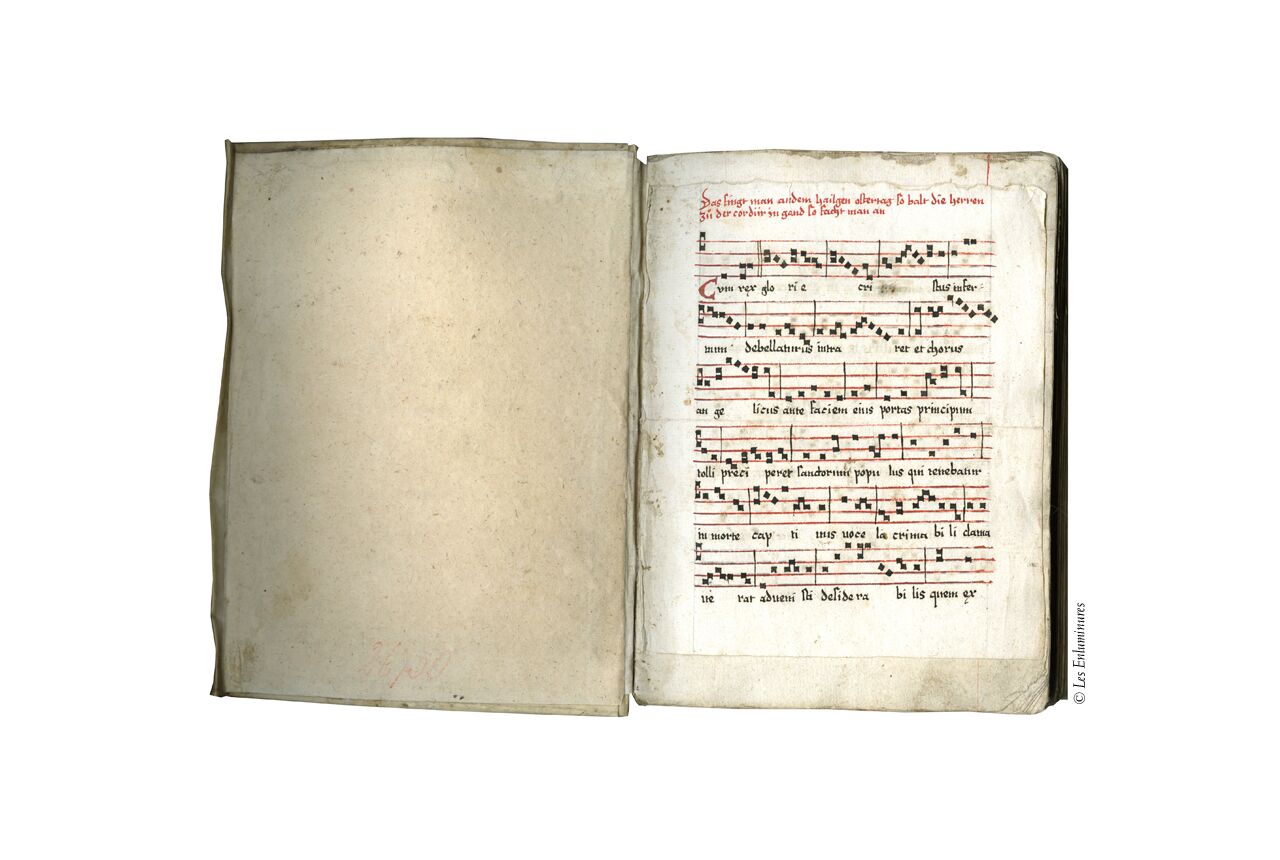 Das singt man andem hailgen ostertag so balt die herren
zů der cordür jn gand so facht man an
Cum rex glo ri e cri stus infer-
num debellaturus intra ret et chorus
an ge licus ante faciem eius portas principum
tolli preci peret sanctorum popu lus qui tenebatur
in morte cap ti uus uoce la crima bi li clama
ue rat adueni sti desidera bi lis quem ex
© Les Enluminures